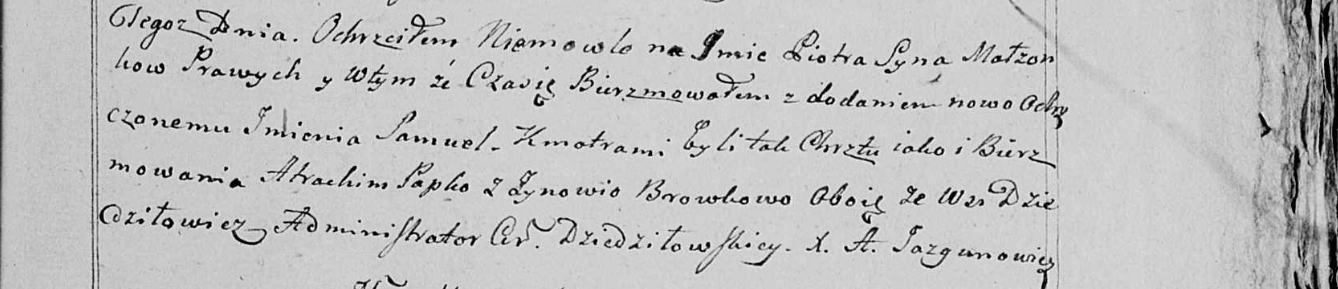 Tegoz Dnia. Ochrzciłem Niemowlo na Jmie Piotra Syna Małzon
kow Prawych y Wtym źe Czasię Bierzmowałem z dodaniem nowo Ochrz
czonemu Jmienia Samuel. Kmotrami byli tak Chrztu iako i Bierz
mowania Atrachim Papko z Zynowio Browkowo Oboię ze Wsi Dzie
dziłowicz Administrator Cer. Dziedziłowskiey. X. A. Jazgunowicz